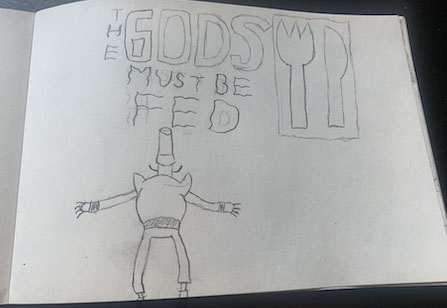 THE
GODS
MUST BE
FED